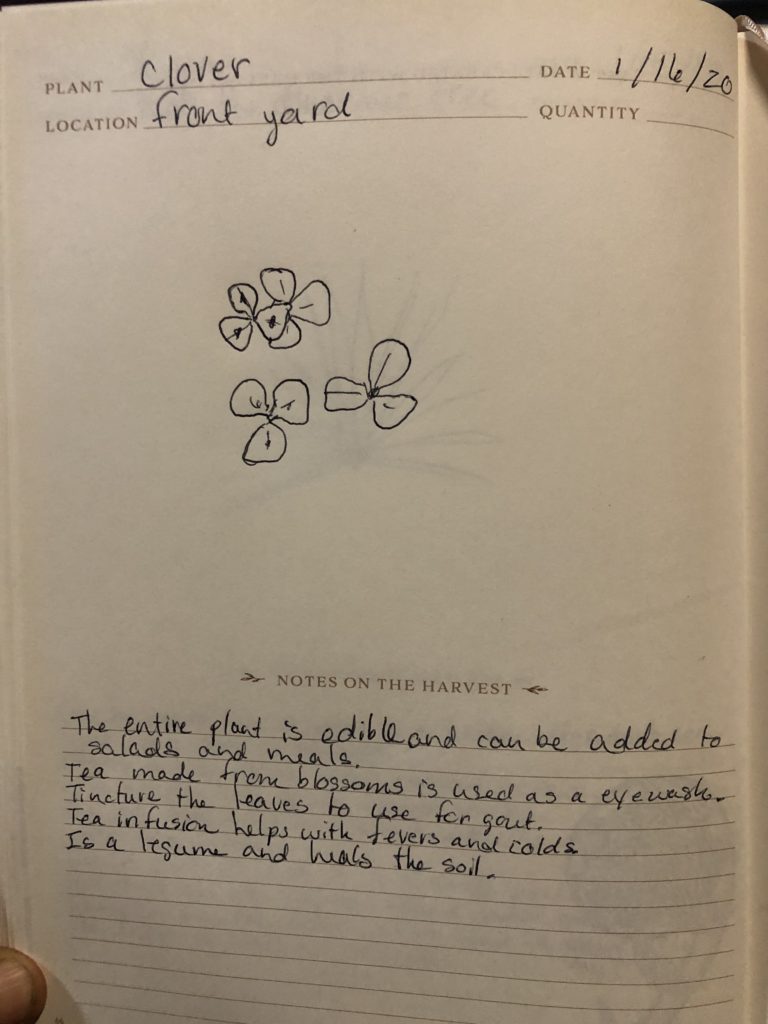 PLANT Clover DATE 1/16/20
LOCATION front yard QUANTITY
NOTES ON THE HARVEST
The entire plant is edible and can be added to
salads and meals.
Tea made from blossoms is used as a eyewash.
Tincture the leaves to use for gout.
Tea infusion helps with fevers and colds
Is a legume and heals the soil.